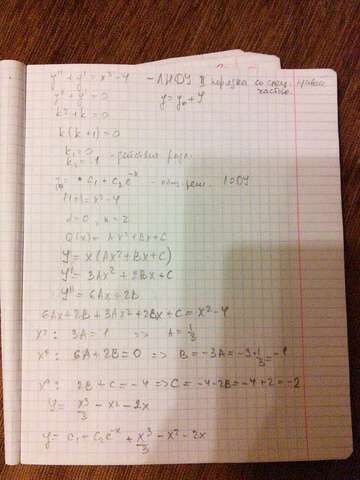 y'' + y' = x² - 4 - ЛНДУ II порядка со спец. правой частью.
y'' + y' = 0 y = y₀ + Y
k² + k = 0
k(k+1) = 0
k₁ = 0
k₂ = -1 - действит. разл.
y₀ = c₁ + c₂e⁻ˣ - общ. реш. ЛОДУ
f(x) = x² - 4
α = 0, n = 2
Q(x) = Ax² + Bx + C
Y = x(Ax² + Bx + C)
Y' = 3Ax² + 2Bx + C
Y'' = 6Ax + 2B
6Ax + 2B + 3Ax² + 2Bx + C = x² - 4
x²: 3A = 1 => A = 1/3
x¹: 6A + 2B = 0 => B = -3A = -3·1/3 = -1
x⁰: 2B + C = -4 => C = -4 - 2B = -4 + 2 = -2
Y = x³/3 - x² - 2x
y = c₁ - c₂e⁻ˣ + x³/3 - x² - 2x